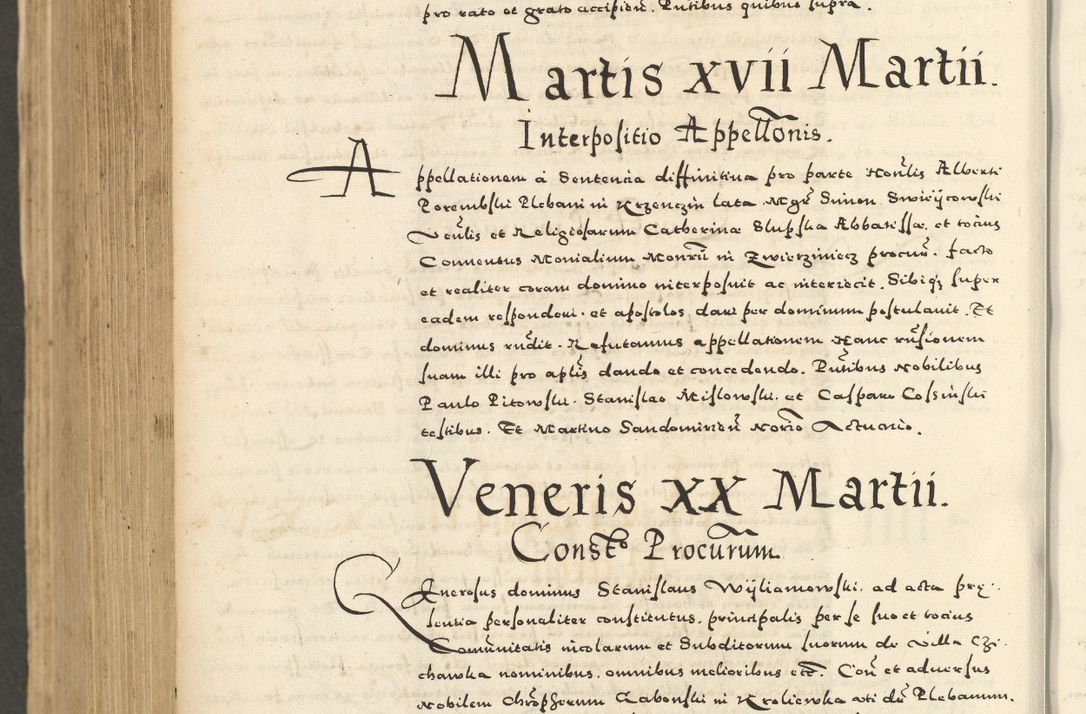 pro rato et grato accipien. Pntibus quibus supra.
Martis xvii Martii.
Interpositio Appellonis.
Appellationem a Sentencia diffinitiua pro parte Honlis Alberti
Porembski Plebani in Krzenczin lata Mgr Simon
Venlis et Religiosarum Catherinæ Slupska Abbatissæ. et tocius
Conuentus Monialium Monrii in Zwierziniecz procur. facto
et realiter coram domino interposuit ac interiecit. Sibiq3 super
eadem responderi. et apostolos dari per dominum postulauit. Et
dominus rndit. Refutamus appellationem Hanc rusionem
suam illi pro aplis dando et concedendo. Pntibus Nobilibus
Paulo Pitowski. Stanislao Mislowski. et Casparo Cossinski
testibus. Et Martino Sandomirien Norio Actuario.
Veneris xx Martii.
Consto Procurum
Generosus dominus Stanislaus Wijliamowski. ad acta prę-
sentia personaliter constitutus. principalis per se suo et tocius
Comunitatis incolarum et Subditorum suorum de Villa Czi-
chawka nominibus. omnibus melioribus etc. Con et aduersus
Nobilem Chrοpherum Gabonski in Kroliewka ati du Plebanum.